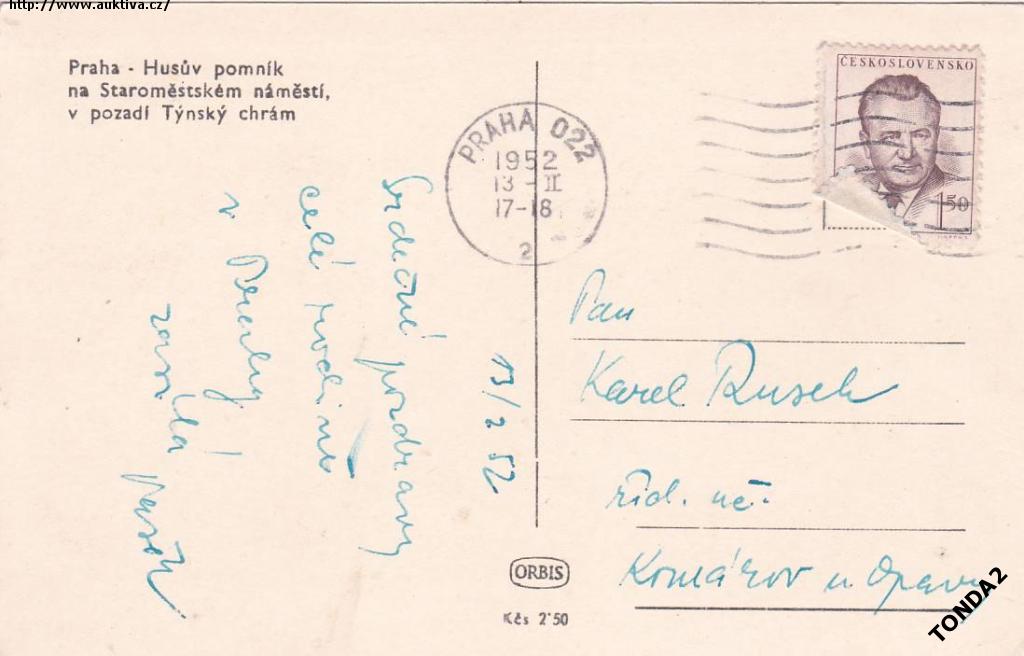 http://www.auktiva.cz/
Praha - Husův pomník
na Staroměstském náměstí,
v pozadí Týnský chrám
PRAHA 022
1952
13-II
17-18
2
ČESKOSLOVENSKO
1 50
Srdečné pozdravy
celé rodině
z
zasílá
13/2 52
Pan
Karel Rusek
říd. uč.
Komárov u Opavy
ORBIS
Kčs 2'50
TONDA2